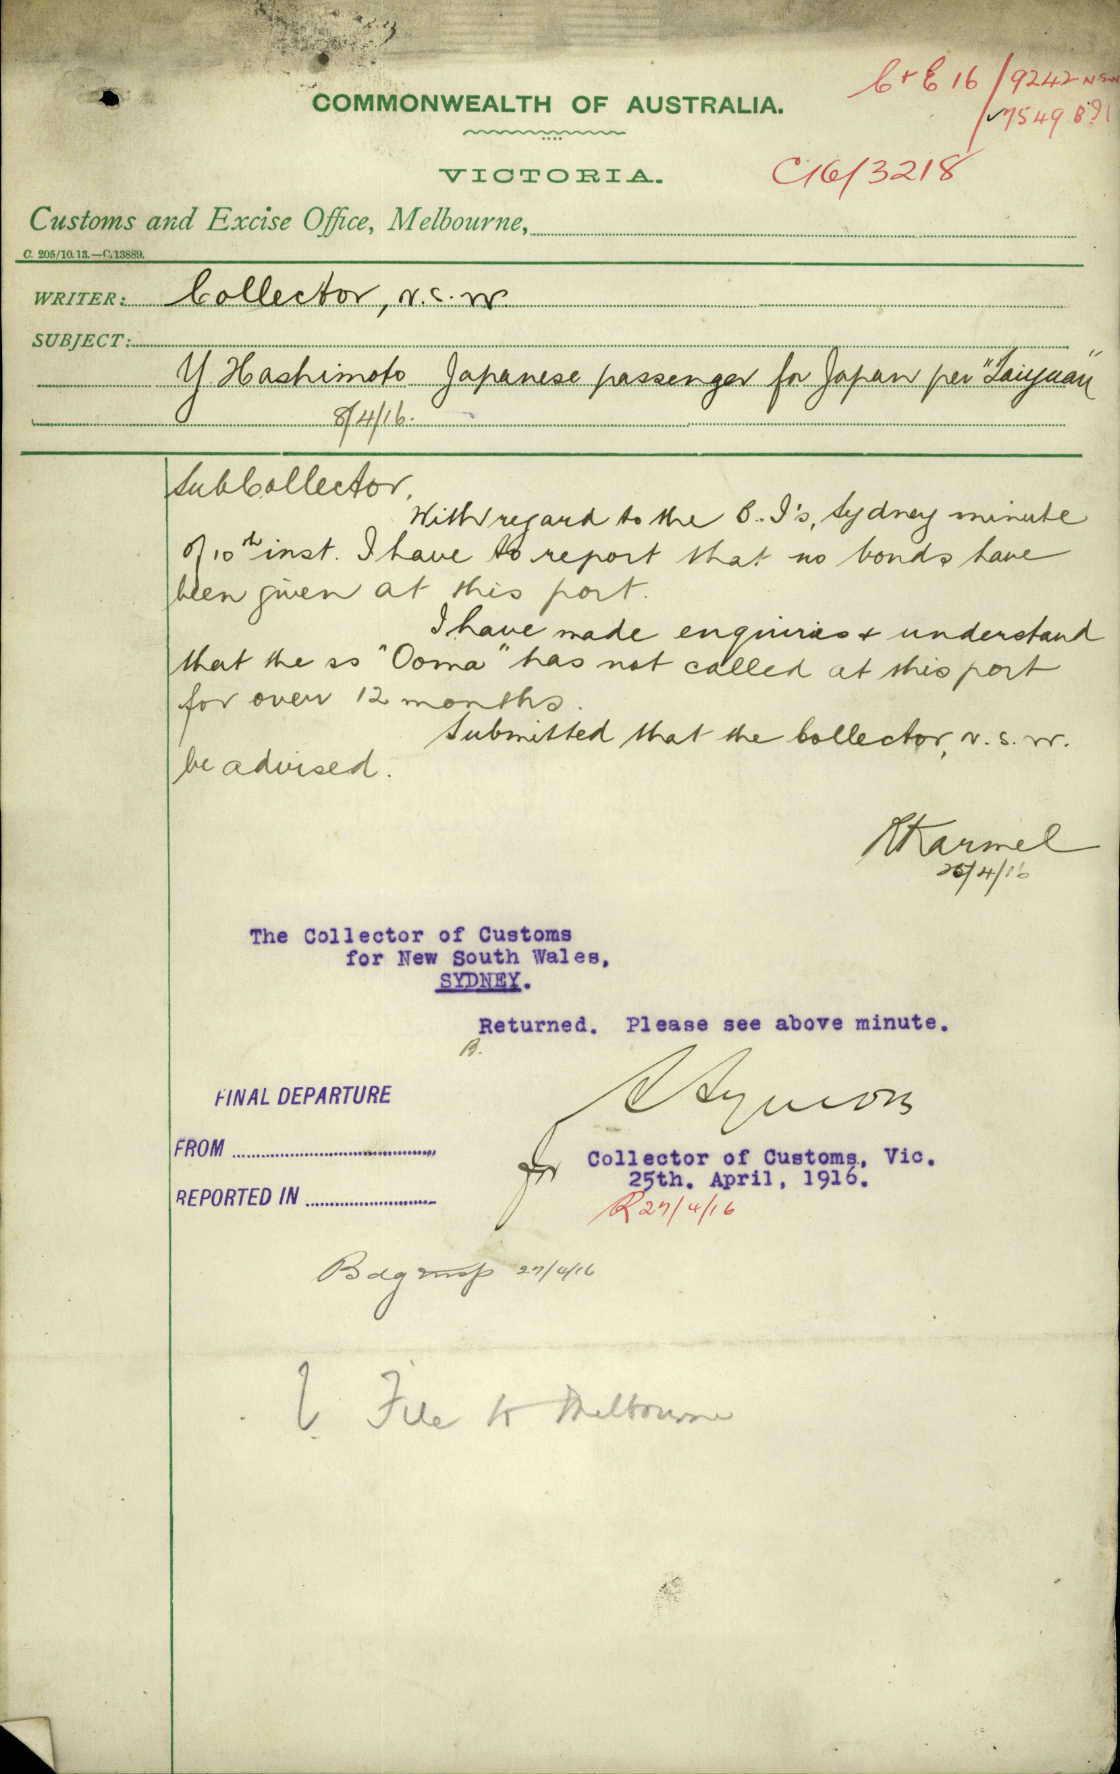 C & E 16/9242 N.S.W.
7549
COMMONWEALTH OF AUSTRALIA.
VICTORIA.
C16/3218
Customs and Excise Office, Melbourne,
C. 205/10.13.—C.13889.
WRITER: Collector, N.S.W.
SUBJECT:
Y Hashimoto Japanese passenger for Japan per "Taiyuan"
8/4/16.
Sub Collector,
With regard to the B.I's, Sydney minute
of 10th inst. I have to report that no bonds have
been given at this port.
I have made enquiries & understand
that the ss "Ooma" has not called at this port
for over 12 months.
Submitted that the Collector, N.S.W.
be advised.
Karmel
25/4/16
The Collector of Customs
for New South Wales,
SYDNEY.
Returned. Please see above minute.
B.
FINAL DEPARTURE
FROM
REPORTED IN
for Collector of Customs, Vic.
25th. April, 1916.
R 27/4/16
27/4/16
File to Melbourne